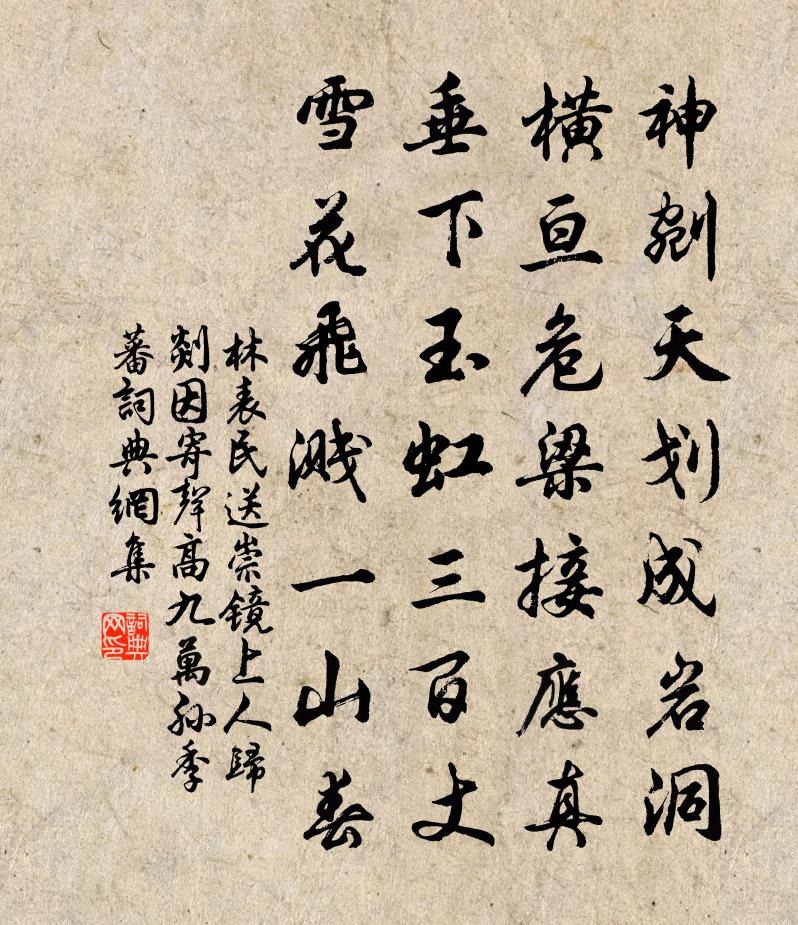 神剜天划成岩洞
横亘危梁接應真
垂下玉虹三百丈
雪花飛濺一山春
林表民送崇鏡上人歸
剡因寄聲高九萬孫季
蕃詞典網集
詞典网印